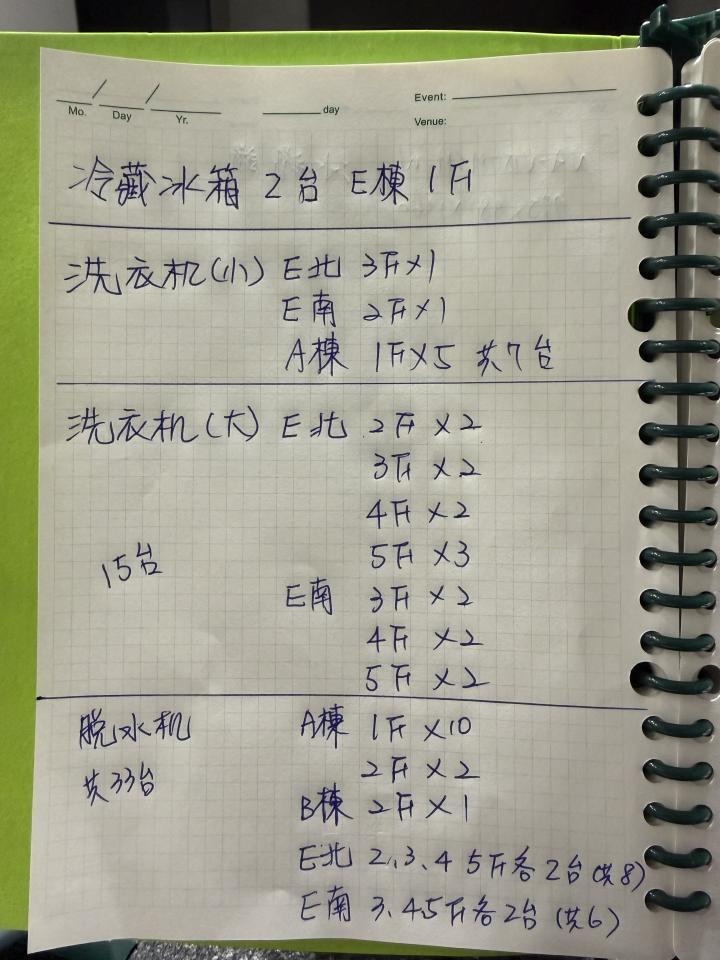 Mo. / Day / Yr. day Event:
Venue:
冷藏冰箱 2台 E棟 1F
洗衣机(小) E北 3F×1
E南 2F×1
A棟 1F×5 共7台
洗衣机(大) E北 2F ×2
3F ×2
4F ×2
5F ×3
15台
E南 3F ×2
4F ×2
5F ×2
脱水机 A棟 1F ×10
2F ×2
共33台
B棟 2F ×1
E北 2、3、4 5F各2台 (共8)
E南 3、4 5F各2台 (共6)